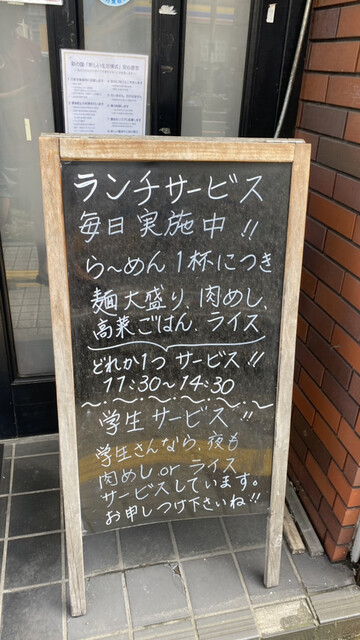 ランチサービス
毎日実施中!!
ら〜めん1杯につき
麺大盛り、肉めし、
高菜ごはん、ライス
どれか1つサービス!!
11:30〜14:30
学生サービス!!
学生さんなら、夜も
肉めしorライス
サービスしています。
お申しつけ下さいね!!